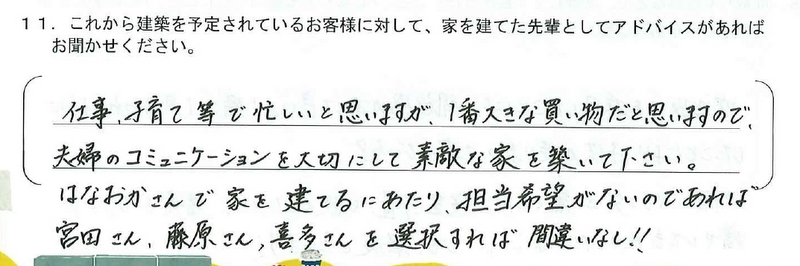 11．これから建築を予定されているお客様に対して、家を建てた先輩としてアドバイスがあれば
お聞かせください。
仕事、子育て等で忙しいと思いますが、1番大きな買い物だと思いますので、
夫婦のコミュニケーションを大切にして素敵な家を築いて下さい。
はなおかさんで家を建てるにあたり、担当希望がないのであれば
宮田さん、藤原さん、喜多さんを選択すれば間違いなし!!